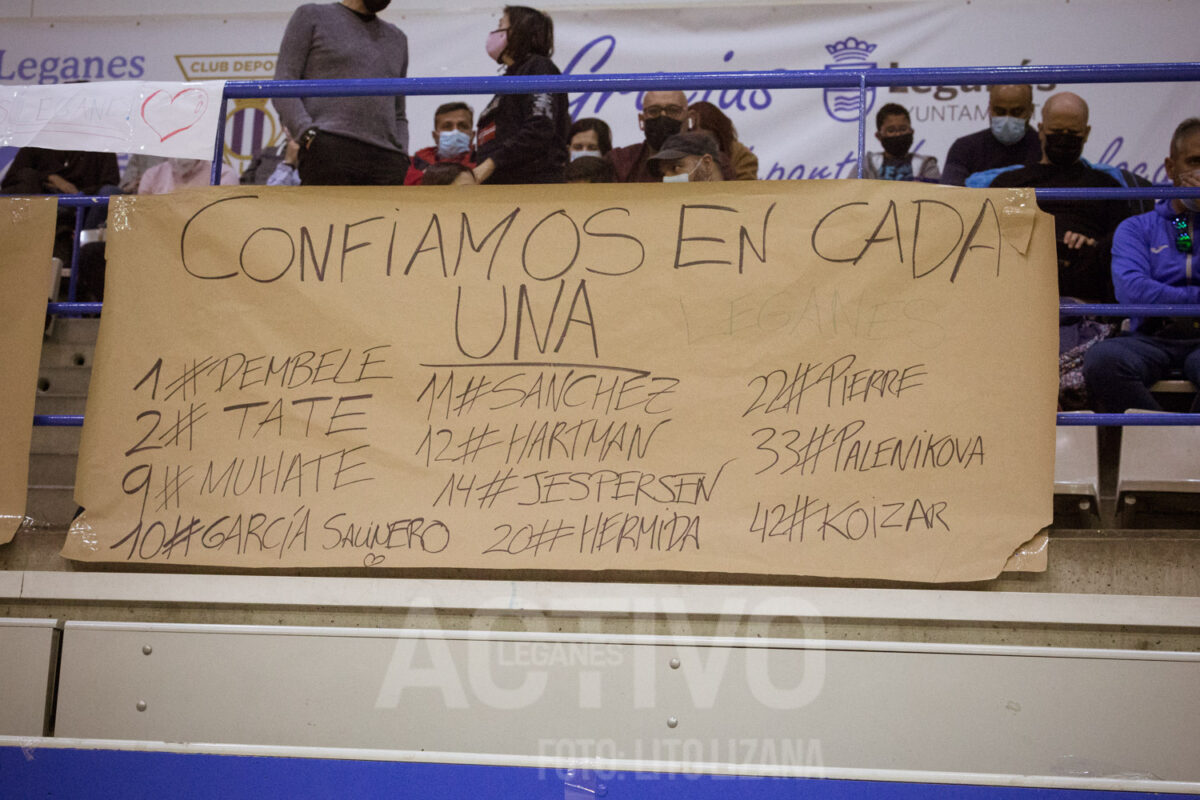 Leganes
CLUB DEPOR
Gracias
Leganés
AYUNTAM
CONFIAMOS EN CADA
UNA
LEGANES
1#DEMBELE
2# TATE
9# MUHATE
10#GARCÍA SALINERO
11#SANCHEZ
12#HARTMAN
14#JESPERSEN
20#HERMIDA
22#PIERRE
33#PALENIKOVA
42#KOIZAR
ACTIVO
LEGANES
FOTO: LITO LIZANA